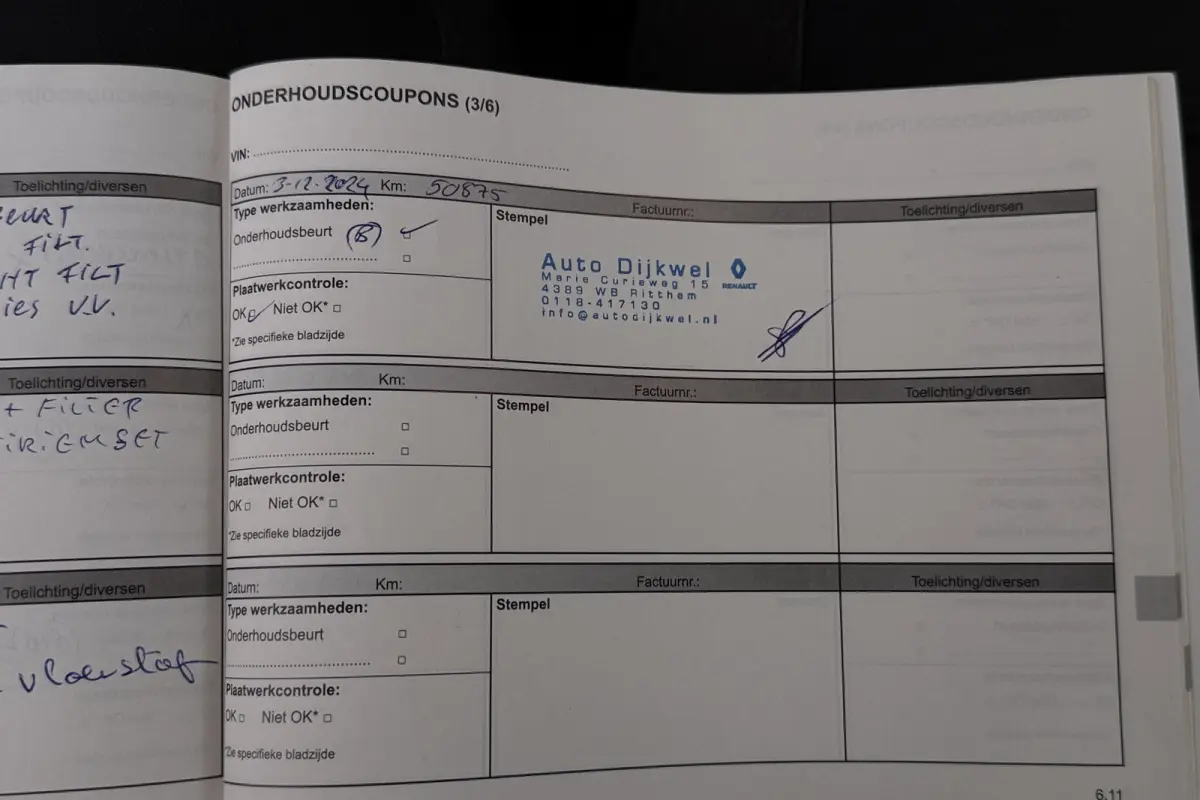 Toelichting/diversen
FILT.
FILT
V.V.
Toelichting/diversen
+ FILTER
Toelichting/diversen
vloeistof
ONDERHOUDSCOUPONS (3/6)
VIN:
Datum: 3-12-2024 Km: 50875 Factuurnr.: Toelichting/diversen
Type werkzaamheden:
Onderhoudsbeurt (B)
Plaatwerkcontrole:
OK Niet OK*
*Zie specifieke bladzijde
Stempel
Auto Dijkwel
Marie Curieweg 15
4389 WB Ritthem
0118-417130
info@autodijkwel.nl
RENAULT
Datum: Km: Factuurnr.: Toelichting/diversen
Type werkzaamheden:
Onderhoudsbeurt
Plaatwerkcontrole:
OK Niet OK*
*Zie specifieke bladzijde
Stempel
Datum: Km: Factuurnr.: Toelichting/diversen
Type werkzaamheden:
Onderhoudsbeurt
Plaatwerkcontrole:
OK Niet OK*
*Zie specifieke bladzijde
Stempel
6.11